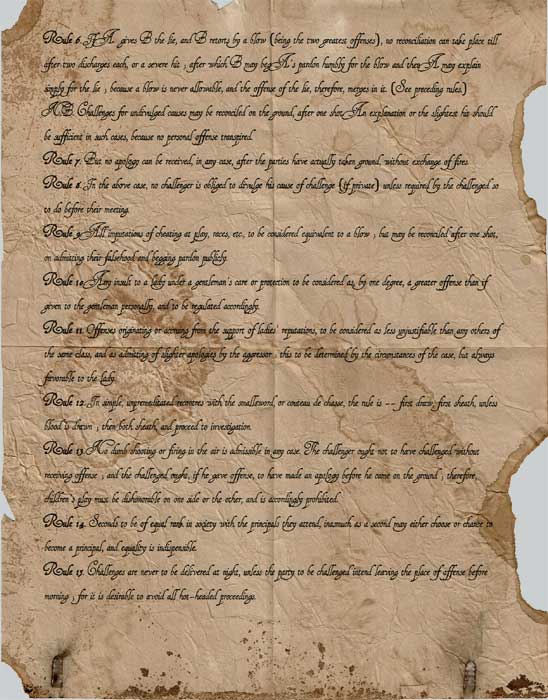 Rule 6. If A. gives B the lie, and B retorts by a blow (being the two greatest offenses), no reconciliation can take place till
after two discharges each, or a severe hit ; after which B may beg A's pardon humbly for the blow and then A may explain
simply for the lie ; because a blow is never allowable, and the offense of the lie, therefore, merges in it. (See preceding rules.)
N.B. Challenges for undivulged causes may be reconciled on the ground, after one shot. An explanation or the slightest hit should
be sufficient in such cases, because no personal offense transpired.
Rule 7. But no apology can be received, in any case, after the parties have actually taken ground, without exchange of fires.
Rule 8. In the above case, no challenger is obliged to divulge his cause of challenge (if private) unless required by the challenged so
to do before their meeting.
Rule 9. All imputations of cheating at play, races, etc., to be considered equivalent to a blow ; but may be reconciled after one shot,
on admitting their falsehood and begging pardon publicly.
Rule 10. Any insult to a lady under a gentleman's care or protection to be considered as, by one degree, a greater offense than if
given to the gentleman personally, and to be regulated accordingly.
Rule 11. Offenses originating or accruing from the support of ladies' reputations, to be considered as less unjustifiable than any others of
the same class, and as admitting of slighter apologies by the aggressor : this to be determined by the circumstances of the case, but always
favorable to the lady.
Rule 12. In simple, unpremeditated recontres with the smallsword, or couteau de chasse, the rule is -- first draw, first sheath, unless
blood is drawn ; then both sheath, and proceed to investigation.
Rule 13. No dumb shooting or firing in the air is admissible in any case. The challenger ought not to have challenged without
receiving offense ; and the challenged ought, if he gave offense, to have made an apology before he came on the ground ; therefore,
children's play must be dishonorable on one side or the other, and is accordingly prohibited.
Rule 14. Seconds to be of equal rank in society with the principals they attend, inasmuch as a second may either choose or chance to
become a principal, and equality is indispensible.
Rule 15. Challenges are never to be delivered at night, unless the party to be challenged intend leaving the place of offense before
morning ; for it is desirable to avoid all hot-headed proceedings.